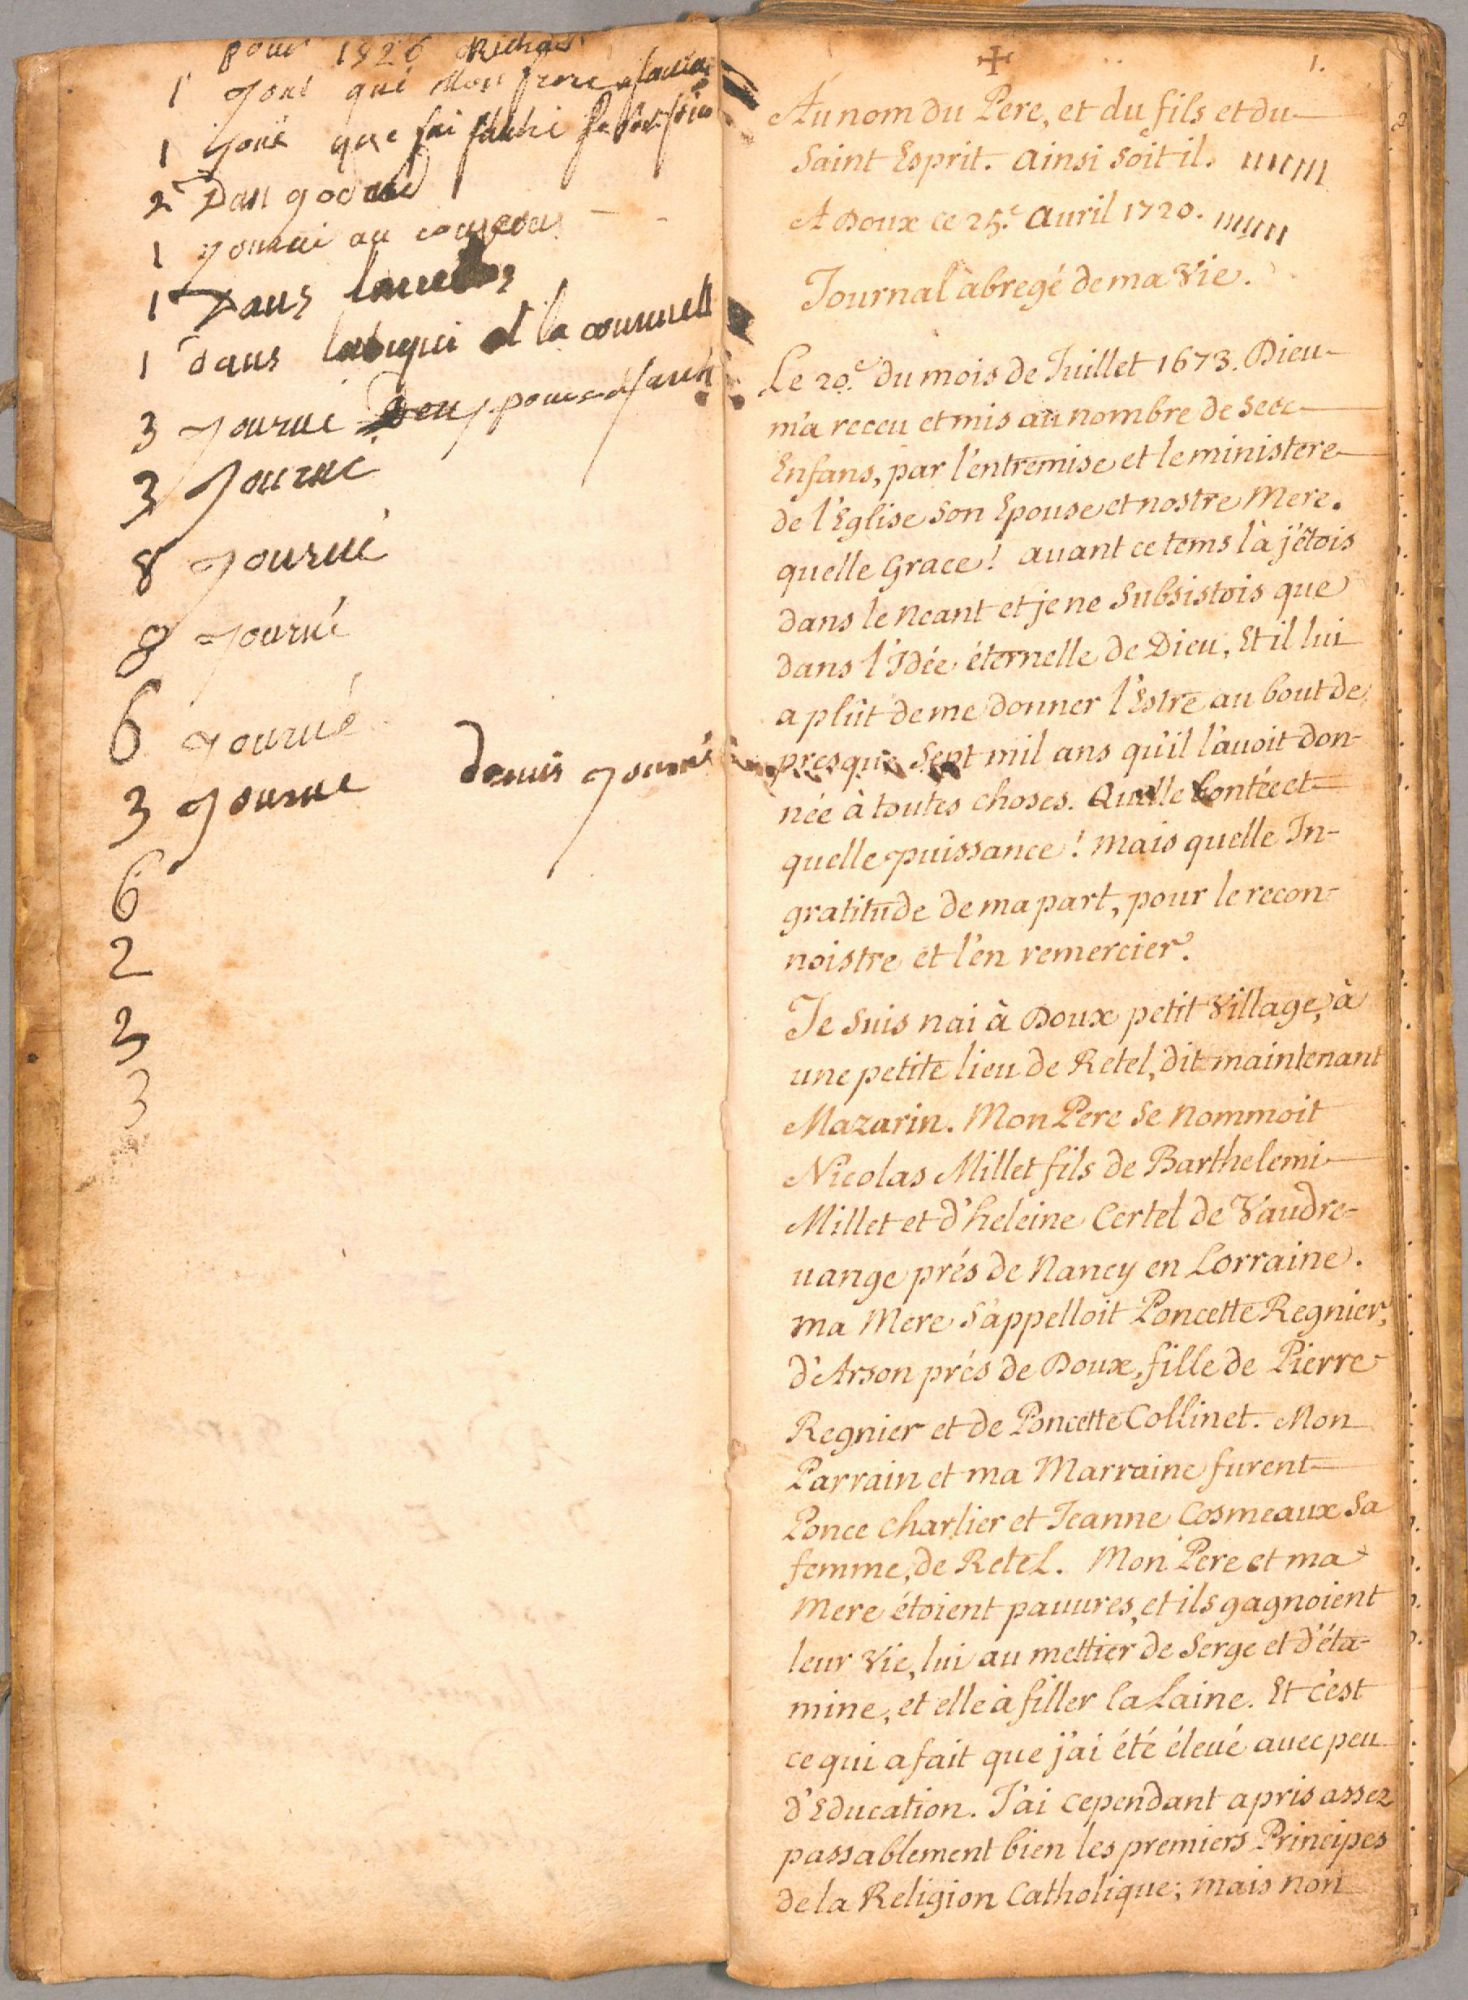 pour 1826 Richar
1 jour que Mon frere
1 jour que j'ai
2 Dan godard
1 journé au
1 Dans
1 dans et la
3 journé Deu pour
3 journé
8 journé
8 journé
6 journé
3 journé demis journé
6
2
3
3
1.
Au nom du Pere, et du fils et du
Saint Esprit. Ainsi soit il.
A Doux ce 25.e Avril 1720.
Journal abregé de ma Vie.
Le 20.e du mois de Juillet 1673. Dieu
m'a receu et mis au nombre de ses
Enfans, par l'entremise et le ministere
de l'Eglise son Epouse et nostre Mere.
quelle Grace! auant ce tems là j'étois
dans le Neant et je ne Subsistois que
dans l'Idée éternelle de Dieu, Et il lui
a plût de me donner l'Estre au bout de
presque Sept mil ans qu'il l'auoit don-
née à toutes choses. Quelle bontée et
quelle puissance! mais quelle In-
gratitude de ma part, pour le recon-
noistre et l'en remercier.
Je suis nai à Doux petit Village, à
une petite lieu de Retel, dit maintenant
Mazarin. Mon Pere se nommoit
Nicolas Millet fils de Barthelemi
Millet et d'heleine Certel de Vaudre-
uange prés de Nancy en Lorraine.
ma Mere s'appelloit Poncette Regnier,
d'Arson prés de Doux, fille de Pierre
Regnier et de Poncette Collinet. Mon
Parrain et ma Marraine furent
Ponce Charlier et Jeanne Cosmeaux sa
femme, de Retel. Mon Pere et ma
Mere étoient pauures, et ils gagnoient
leur Vie, lui au mettier de Serge et d'éta-
mine, et elle à filler la Laine. Et c'est
ce qui a fait que j'ai été éleué auec peu
d'Education. J'ai cependant apris assez
passablement bien les premiers Principes
de la Religion Catholique; mais non